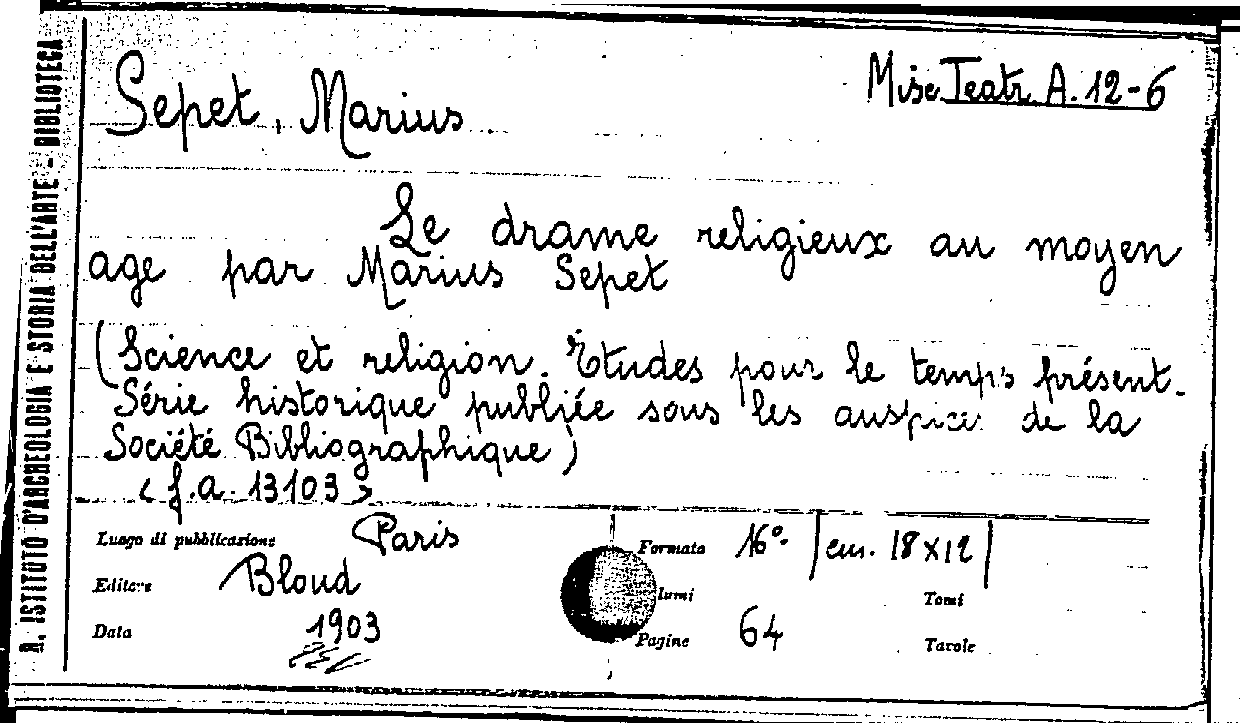 R. ISTITUTO D'ARCHEOLOGIA E STORIA DELL'ARTE - BIBLIOTECA
Sepet, Marius
Misc Teatr. A. 12-6
Le drame religieux au moyen
age par Marius Sepet
(Science et religion. Etudes pour le temps présent.
Série historique publiée sous les auspices de la
Société Bibliographique)
<f.a. 13103>
Luogo di pubblicazione Paris
Formato 16º. |cm. 18x12|
Editore Bloud
lumi
Tomi
Data 1903
Pagine 64
Tavole